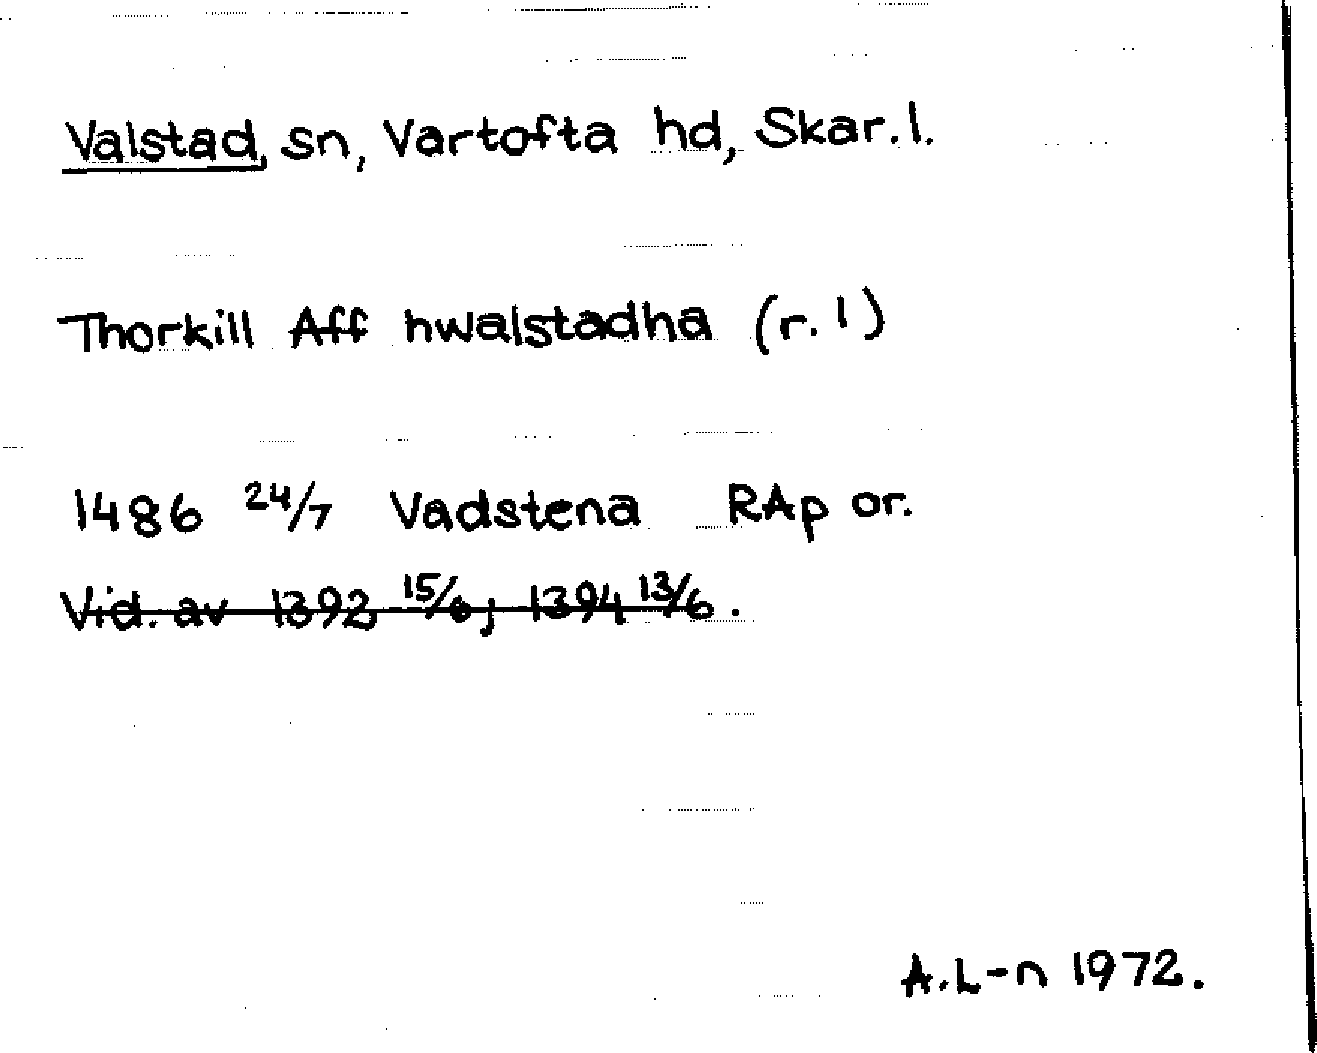 Valstad, sn, Vartofta hd, Skar.l.
Thorkill Aff hwalstadha (r. 1)
1486 24/7 Vadstena RAp or.
Vid. av 1392 15/6; 1394 13/6.
A.L-n 1972.